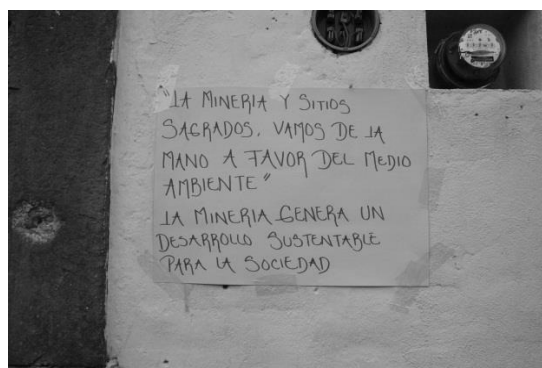 "LA MINERIA Y SITIOS
SAGRADOS, VAMOS DE LA
MANO A FAVOR DEL MEDIO
AMBIENTE"
LA MINERIA GENERA UN
DESARROLLO SUSTENTABLE
PARA LA SOCIEDAD